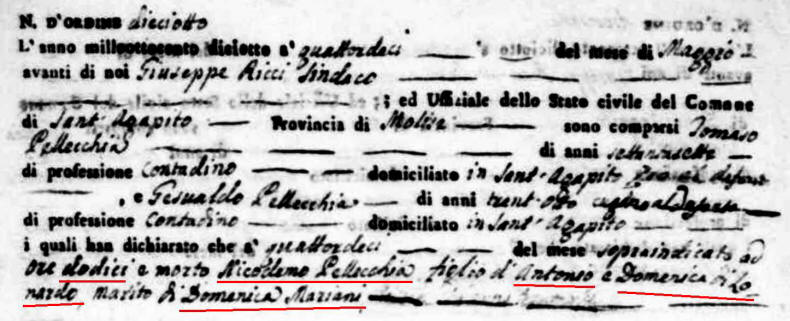 N. D'ORDINE dieciotto
L'anno milleottocento diciotto a' quattordeci del mese di Maggio
avanti di noi Giuseppe Ricci Sindaco
; ed Uffiziale dello Stato civile del Comune
di Sant'Agapito Provincia di Molise sono comparsi Tomaso
Pellecchia di anni settantasette
di professione Contadino domiciliato in Sant'Agapito
, e Gesualdo Pellecchia di anni trent'otto
di professione Contadino domiciliato in Sant'Agapito
i quali han dichiarato che a' quattordeci del mese sopraindicato ad
ore dodici è morto Nicodemo Pellecchia figlio d'Antonio e Domenica di Lo
nardo, marito di Domenica Mariani